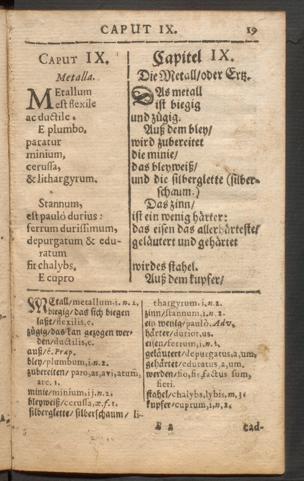 CAPUT IX. 19
CAPUT IX.
Metalla.
MEtallum
est flexile
ac ductile.
E plumbo,
paratur
minium,
cerussa,
& lithargyrum.
Stannum,
est pauló durius:
ferrum durissimum,
depurgatum & edu-
ratum
fit chalybs.
E cupro
Capitel IX.
Die Metall/oder Ertz.
DAs metall
ist biegig
und zügig.
Auß dem bley/
wird zubereitet
die minie/
das bleyweiß/
und die silberglette (silber-
schaum.)
Das zinn/
ist ein wenig härter:
das eisen das allerhärteste/
geläutert und gehärtet
wird es stahel.
Auß dem kupfer/
MEtall/metallum.i.n.2.
biegig/das sich biegen
läst/flexilis,e.
zügig/das kan gezogen wer-
den/ductilis,e.
auß/è.Præp.
bley/plumbum,i.n.2.
zubereiten/paro,as,avi,atum,
are.1.
minie/minium,ij.n.2.
bleyweiß/cerussa,æ.f.1.
silberglette/silberschaum/ li-
thargyrum,i.n.2.
zinn/stannum,i.n.2.
ein wenig/pauló.Adv.
härter/durior,us.
eisen/ferrum,i.n.2.
geläutert/depurgatus,a,um,
gehärtet/eduratus,a,um,
werden/fio,fis,factus sum,
fieri.
stahel/chalybs,lybis.m.3.
kupfer/cuprum,i,n.2.
B 2 cad-